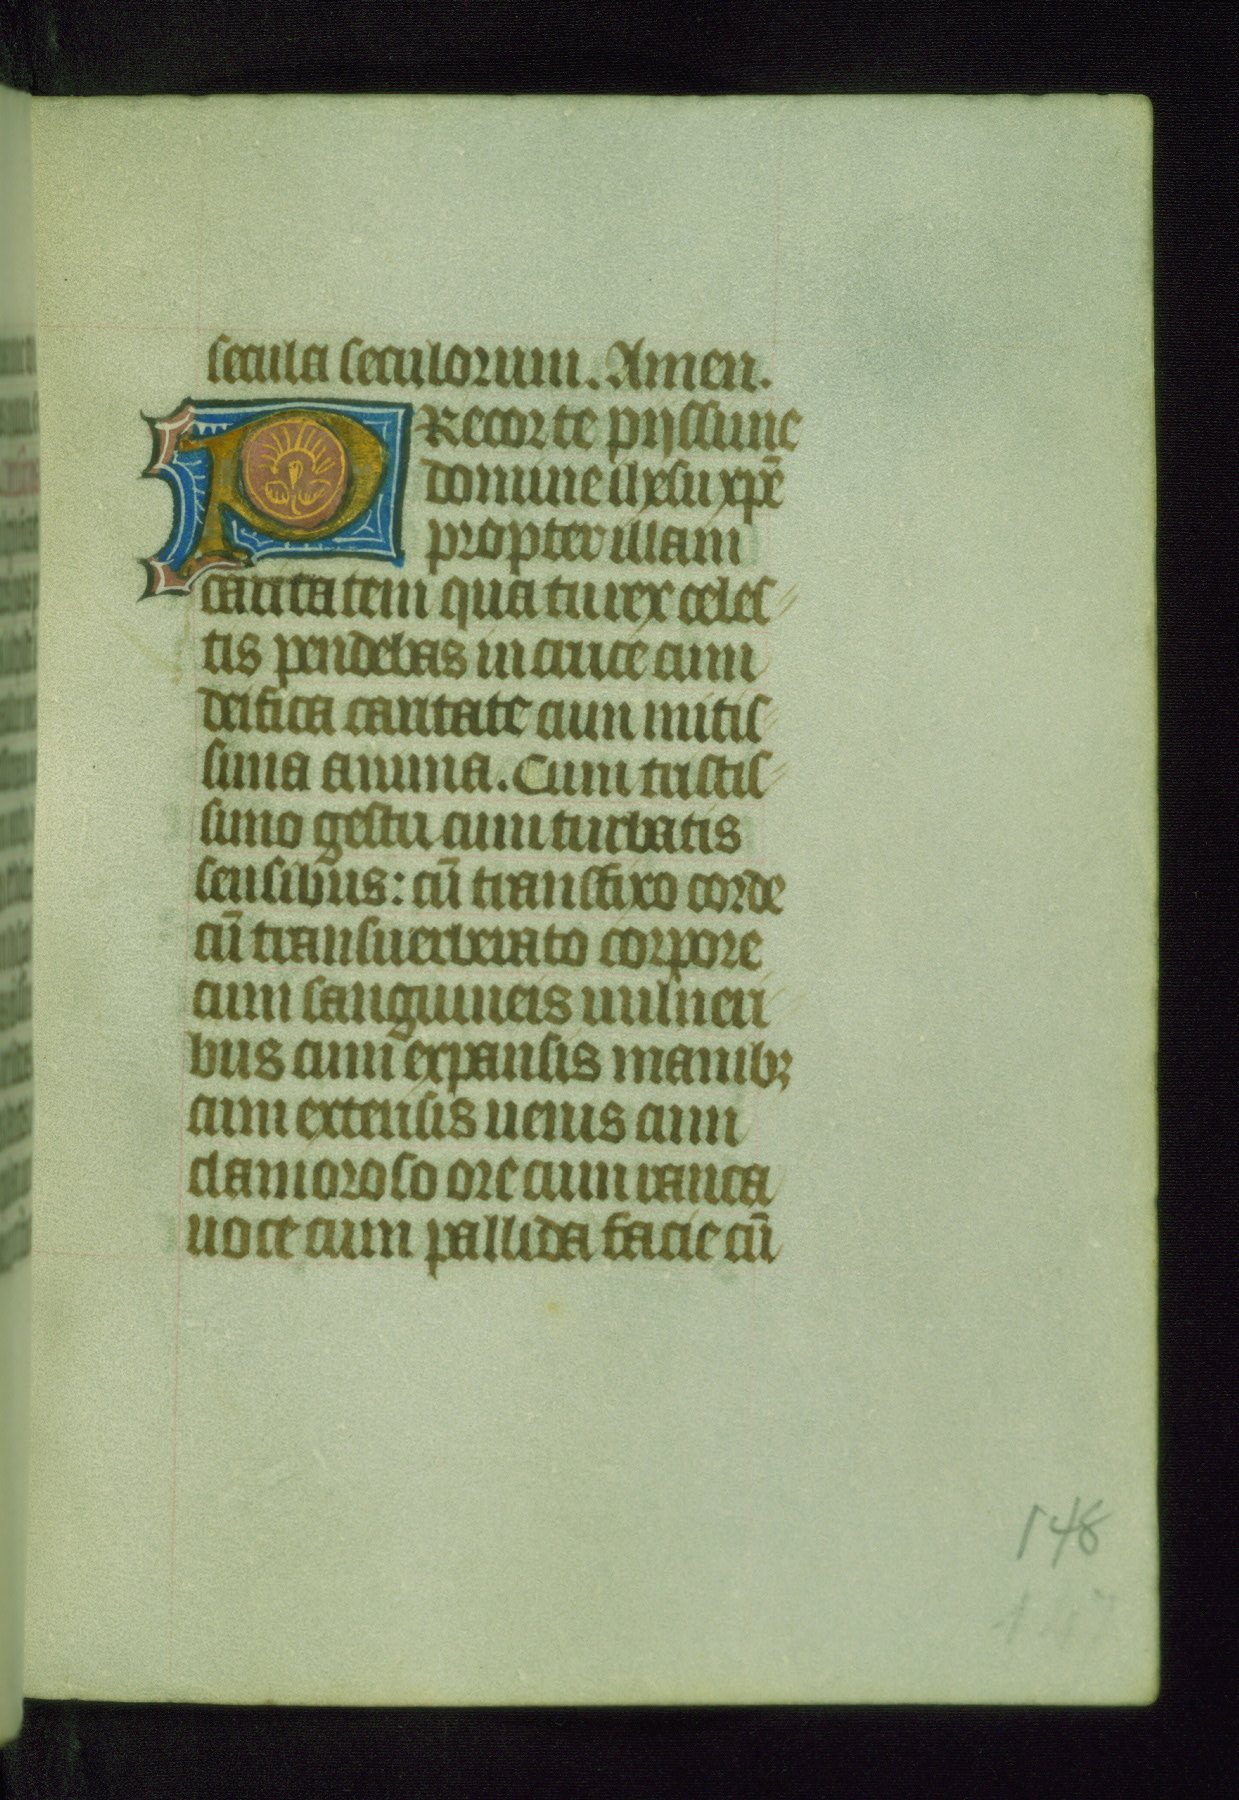 secula seculorum. Amen.
PRecor te pijssime
domine ihesu xp̄e
propter illam
caritatem qua tu rex celes
tis pendebas in cruce cum
deifica caritate cum mitis
sima anima. Cum tristis
simo gestu cum turbatis
sensibus: cū transfixo corde
cū transuerberato corpore
cum sanguineis uulneri
bus cum expansis manibꝫ
cum extensis uenis cum
clamoroso ore cum rauca
uoce cum pallida facie cū
148
147